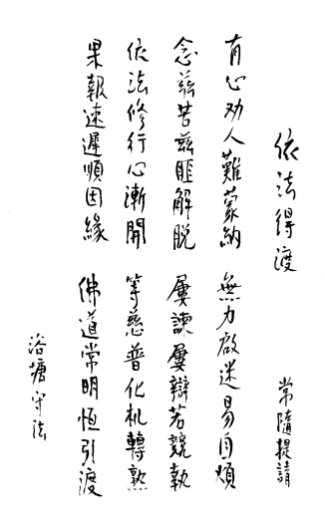 依法得渡 常隨提請
有心劝人難蒙納 無力啟迷易自煩
念茲苦茲匪解脱 屢諫屢辯若競執
依法修行心漸開 等慈普化机轉熟
果報速遲順因緣 佛道常明恆引渡
浴塘守法